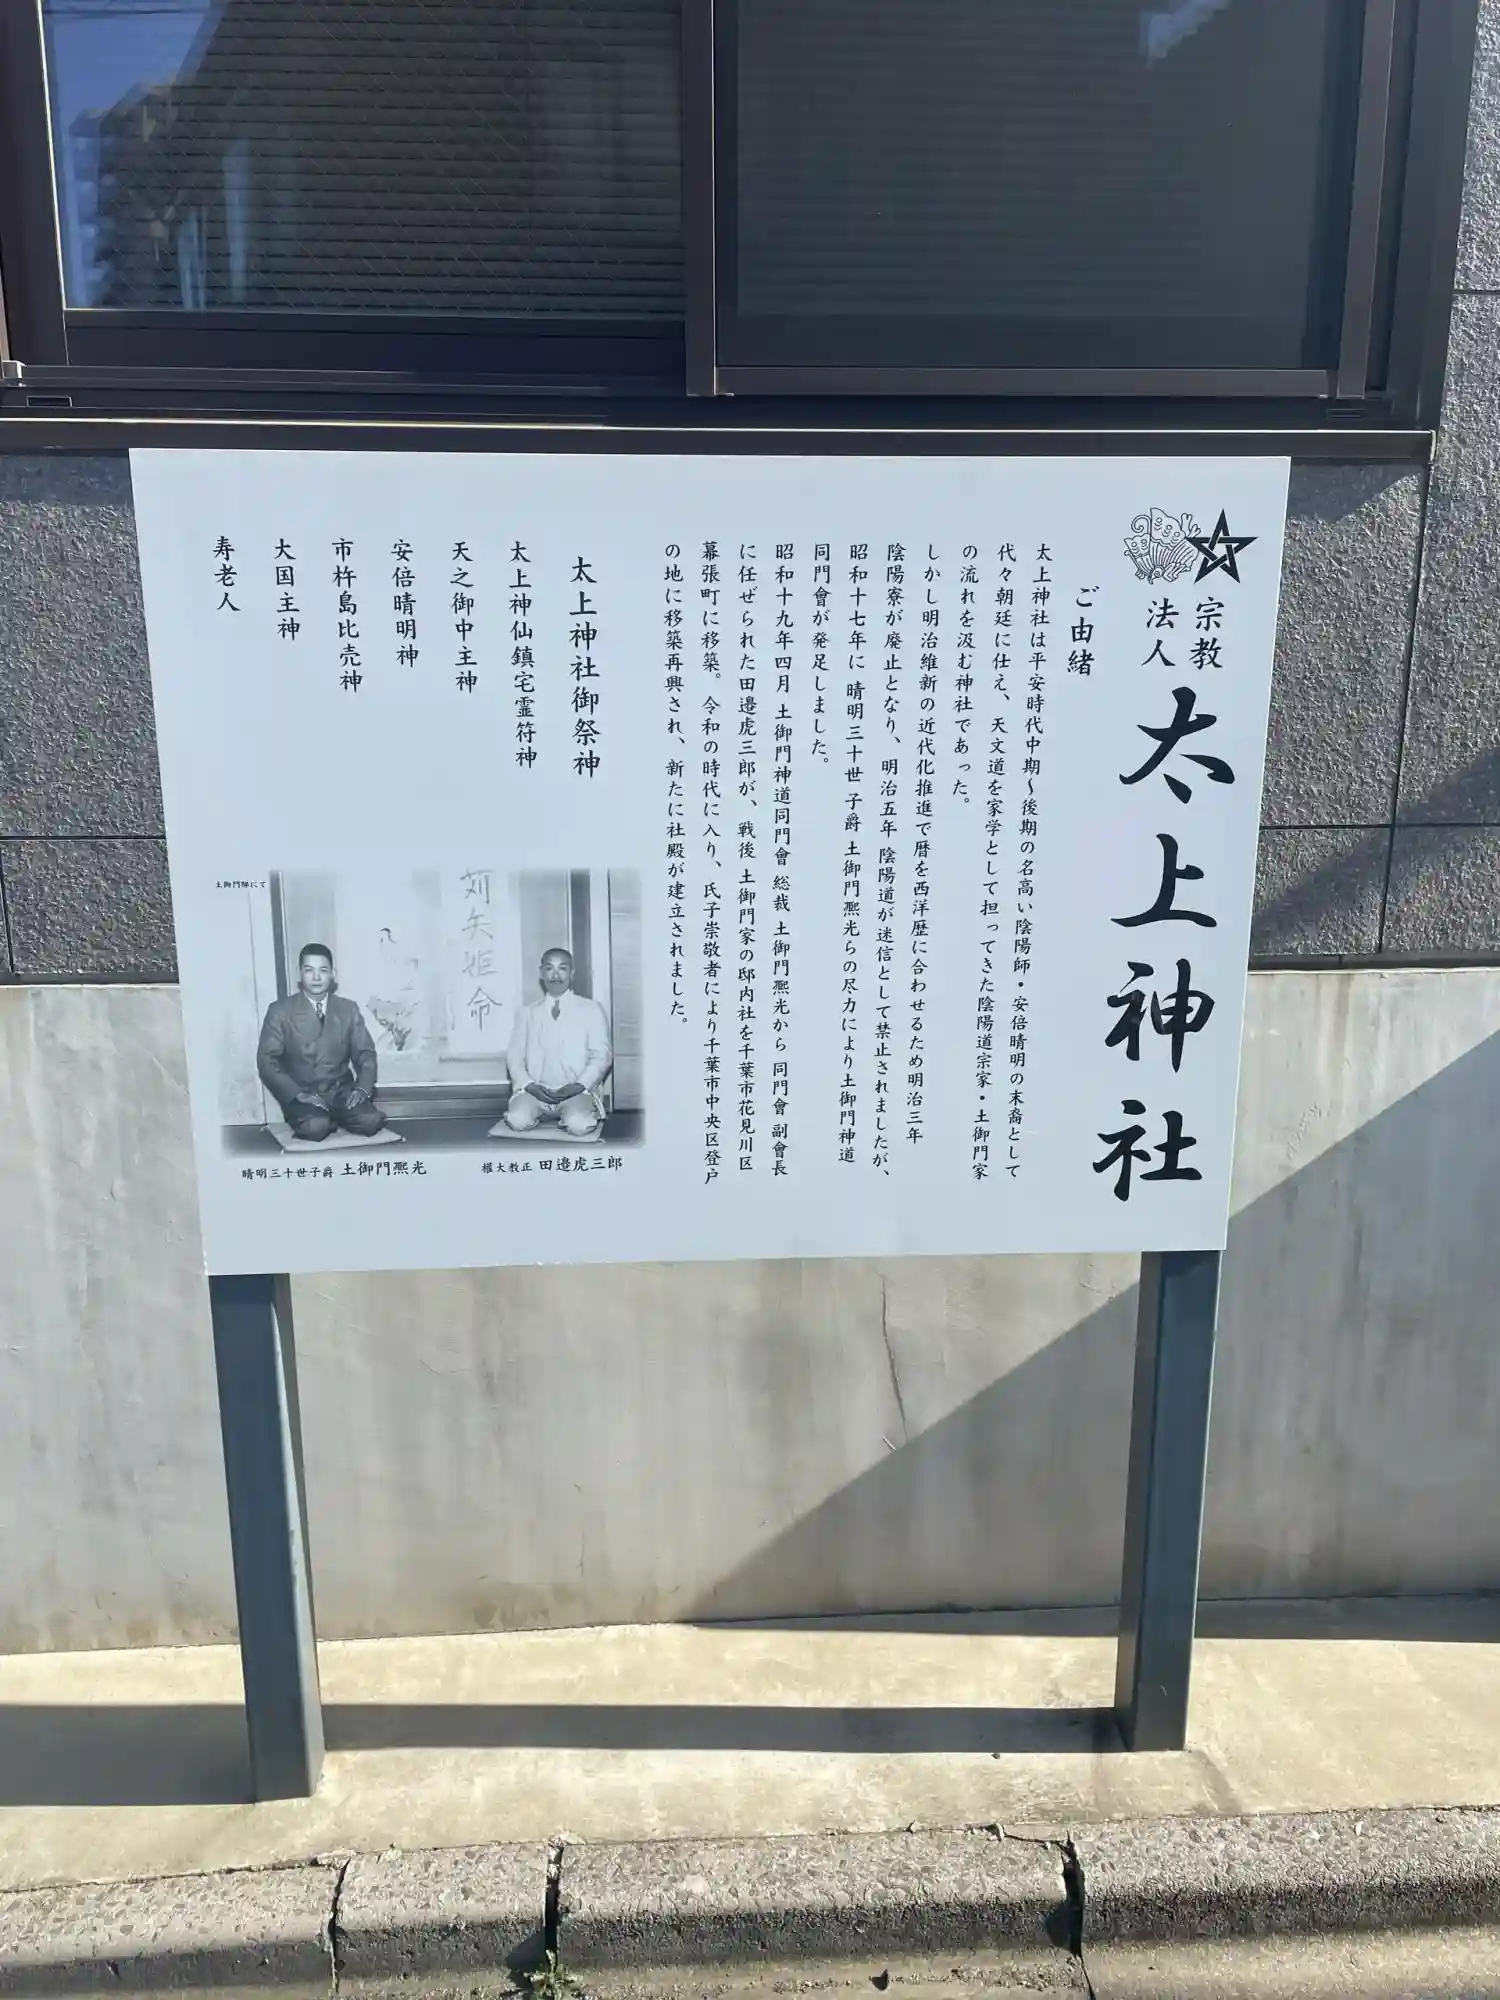 宗教
法人
太上神社
ご由緒
太上神社は平安時代中期～後期の名高い陰陽師・安倍晴明の末裔として
代々朝廷に仕え、天文道を家学として担ってきた陰陽道宗家・土御門家
の流れを汲む神社であった。
しかし明治維新の近代化推進で暦を西洋歴に合わせるため明治三年
陰陽寮が廃止となり、明治五年 陰陽道が迷信として禁止されましたが、
昭和十七年に 晴明三十世 子爵 土御門熈光らの尽力により土御門神道
同門會が発足しました。
昭和十九年四月 土御門神道同門會 総裁 土御門熈光から 同門會 副會長
に任ぜられた田邉虎三郎が、戦後 土御門家の邸内社を千葉市花見川区
幕張町に移築。令和の時代に入り、氏子崇敬者により千葉市中央区登戸
の地に移築再興され、新たに社殿が建立されました。
太上神社御祭神
太上神仙鎮宅霊符神
天之御中主神
安倍晴明神
市杵島比売神
大国主神
寿老人
土御門邸にて
苅矢姫命
権大教正 田邉虎三郎
晴明三十世子爵 土御門熈光